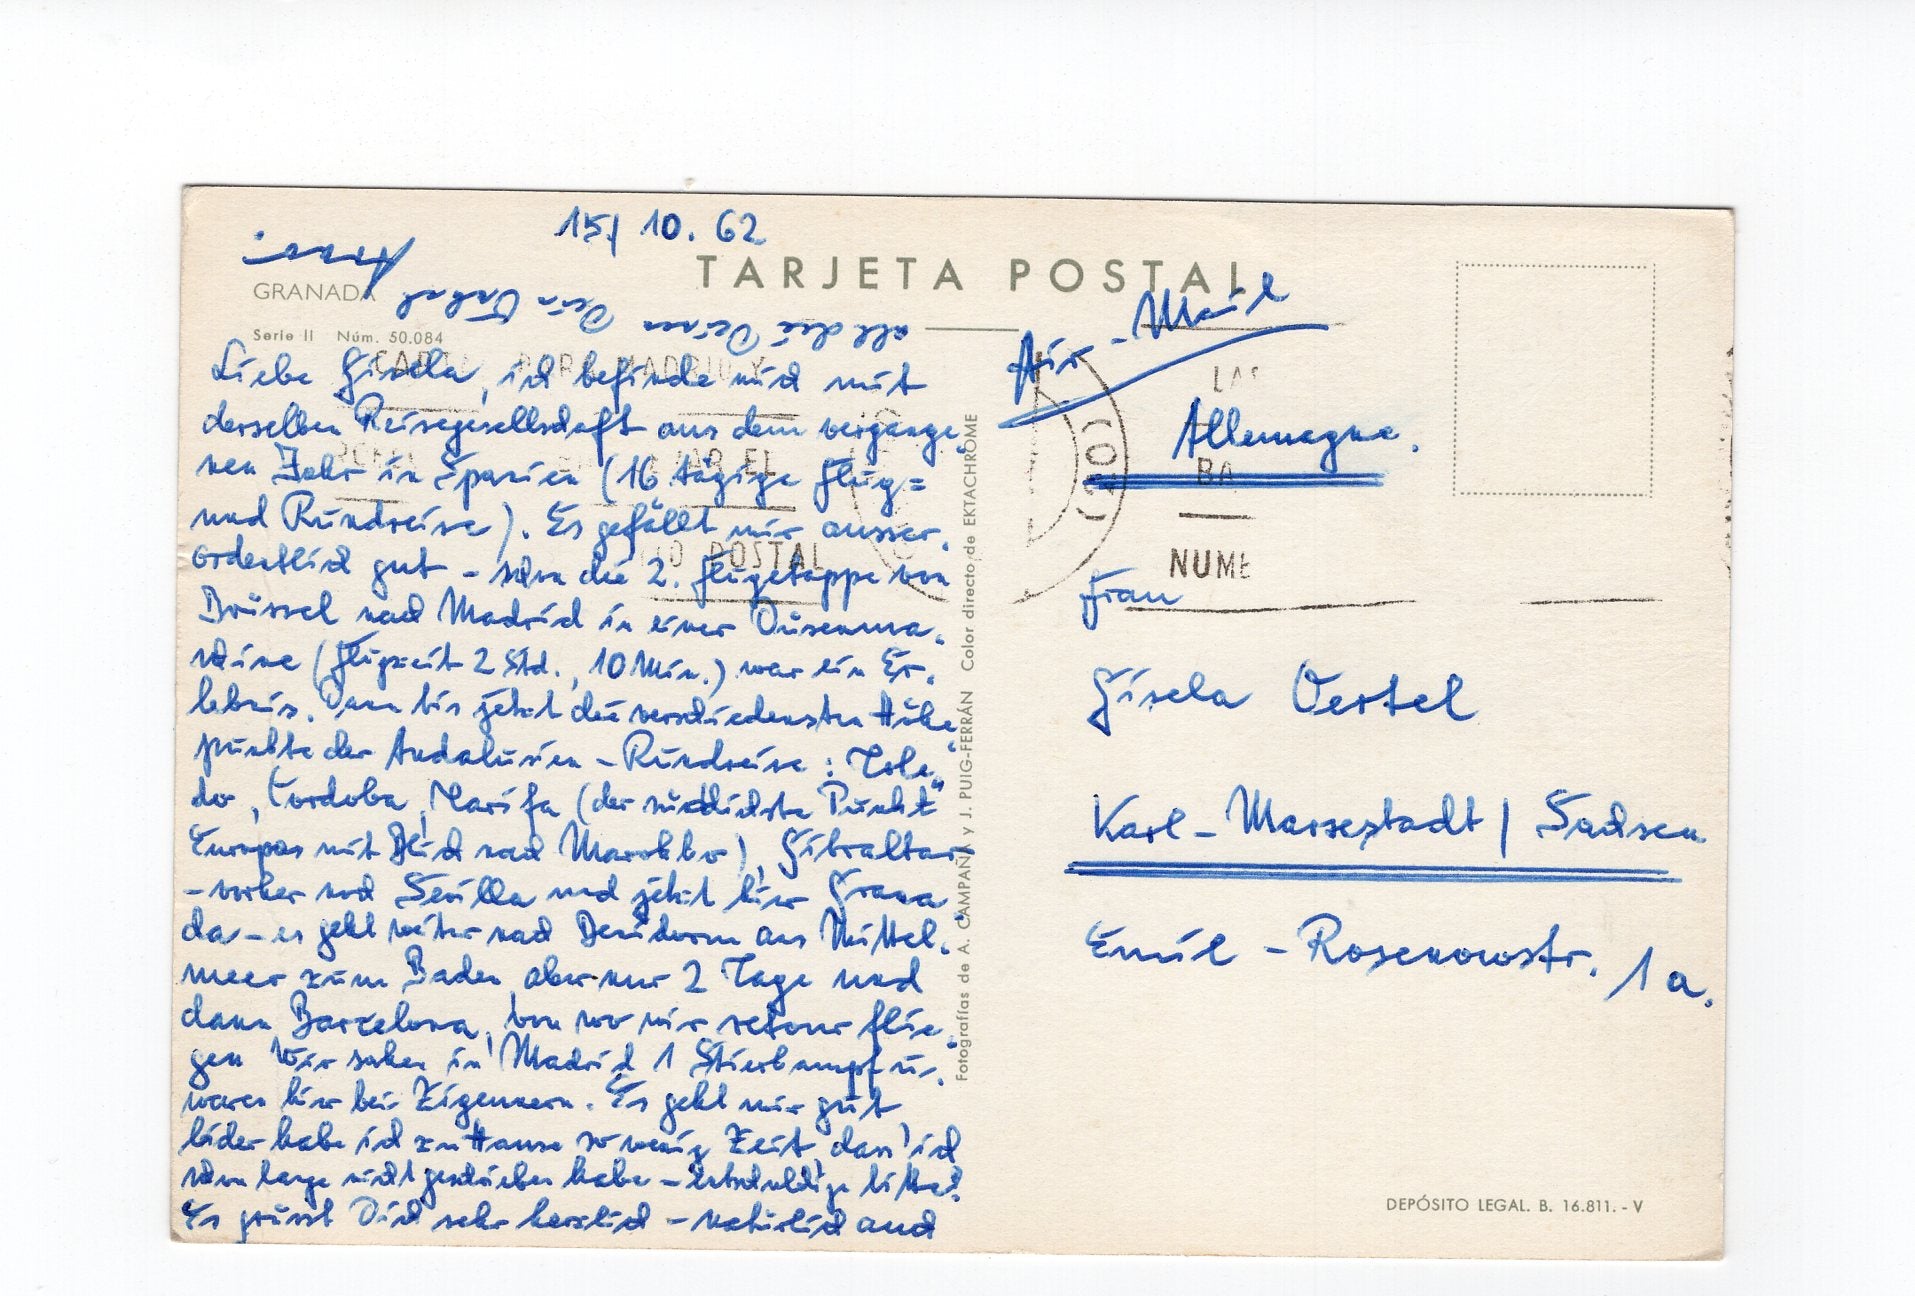 15/ 10. 62
TARJETA POSTAL
GRANADA
Serie II Núm. 50.084
Liebe Gisela, ich befinde mich mit
derselben Reisegesellschaft aus dem vergange-
nen Jahr in Spanien (16 tägige Flug=
und Rundreise). Es gefällt mir ausser-
ordentlich gut - schon die 2. Flugetappe von
Brüssel nach Madrid in einer Düsenma-
schine (Flugzeit 2 Std., 10 Min.) war ein Er-
lebnis. Dann bis jetzt die verschiedensten Höhe-
punkte der Andalusien - Rundreise: Tole-
do, Cordoba, Tarifa (der südlichste Punkt
Europas mit Blick nach Marokko), Gibraltar
- vorher noch Sevilla und jetzt hier Grana-
da - es geht weiter nach Benidorm ans Mittel-
meer zum Baden, aber nur 2 Tage und
dann Barcelona, von wo wir retour flie-
gen. Wir sahen in Madrid 1 Stierkampf u.
waren hier bei Zigeunern. Es geht mir gut
leider habe ich zu Hause so wenig Zeit, dass ich
schon lange nicht geschrieben habe - entschuldige bitte!
Es grüsst Dich sehr herzlich - natürlich auch
all die Deinen Dein Onkel
CARTA POR MADRID Y
POSTAL
(20)
LAS
BA
NUME
Fotografías de A. CAMPAÑÁ y J. PUIG-FERRÁN Color directo de EKTACHROME
Air-Mail
Allemagne.
Frau
Gisela Oertel
Karl-Marxstadt / Sachsen
Emil-Rosenowstr. 1a.
DEPÓSITO LEGAL. B. 16.811. - V